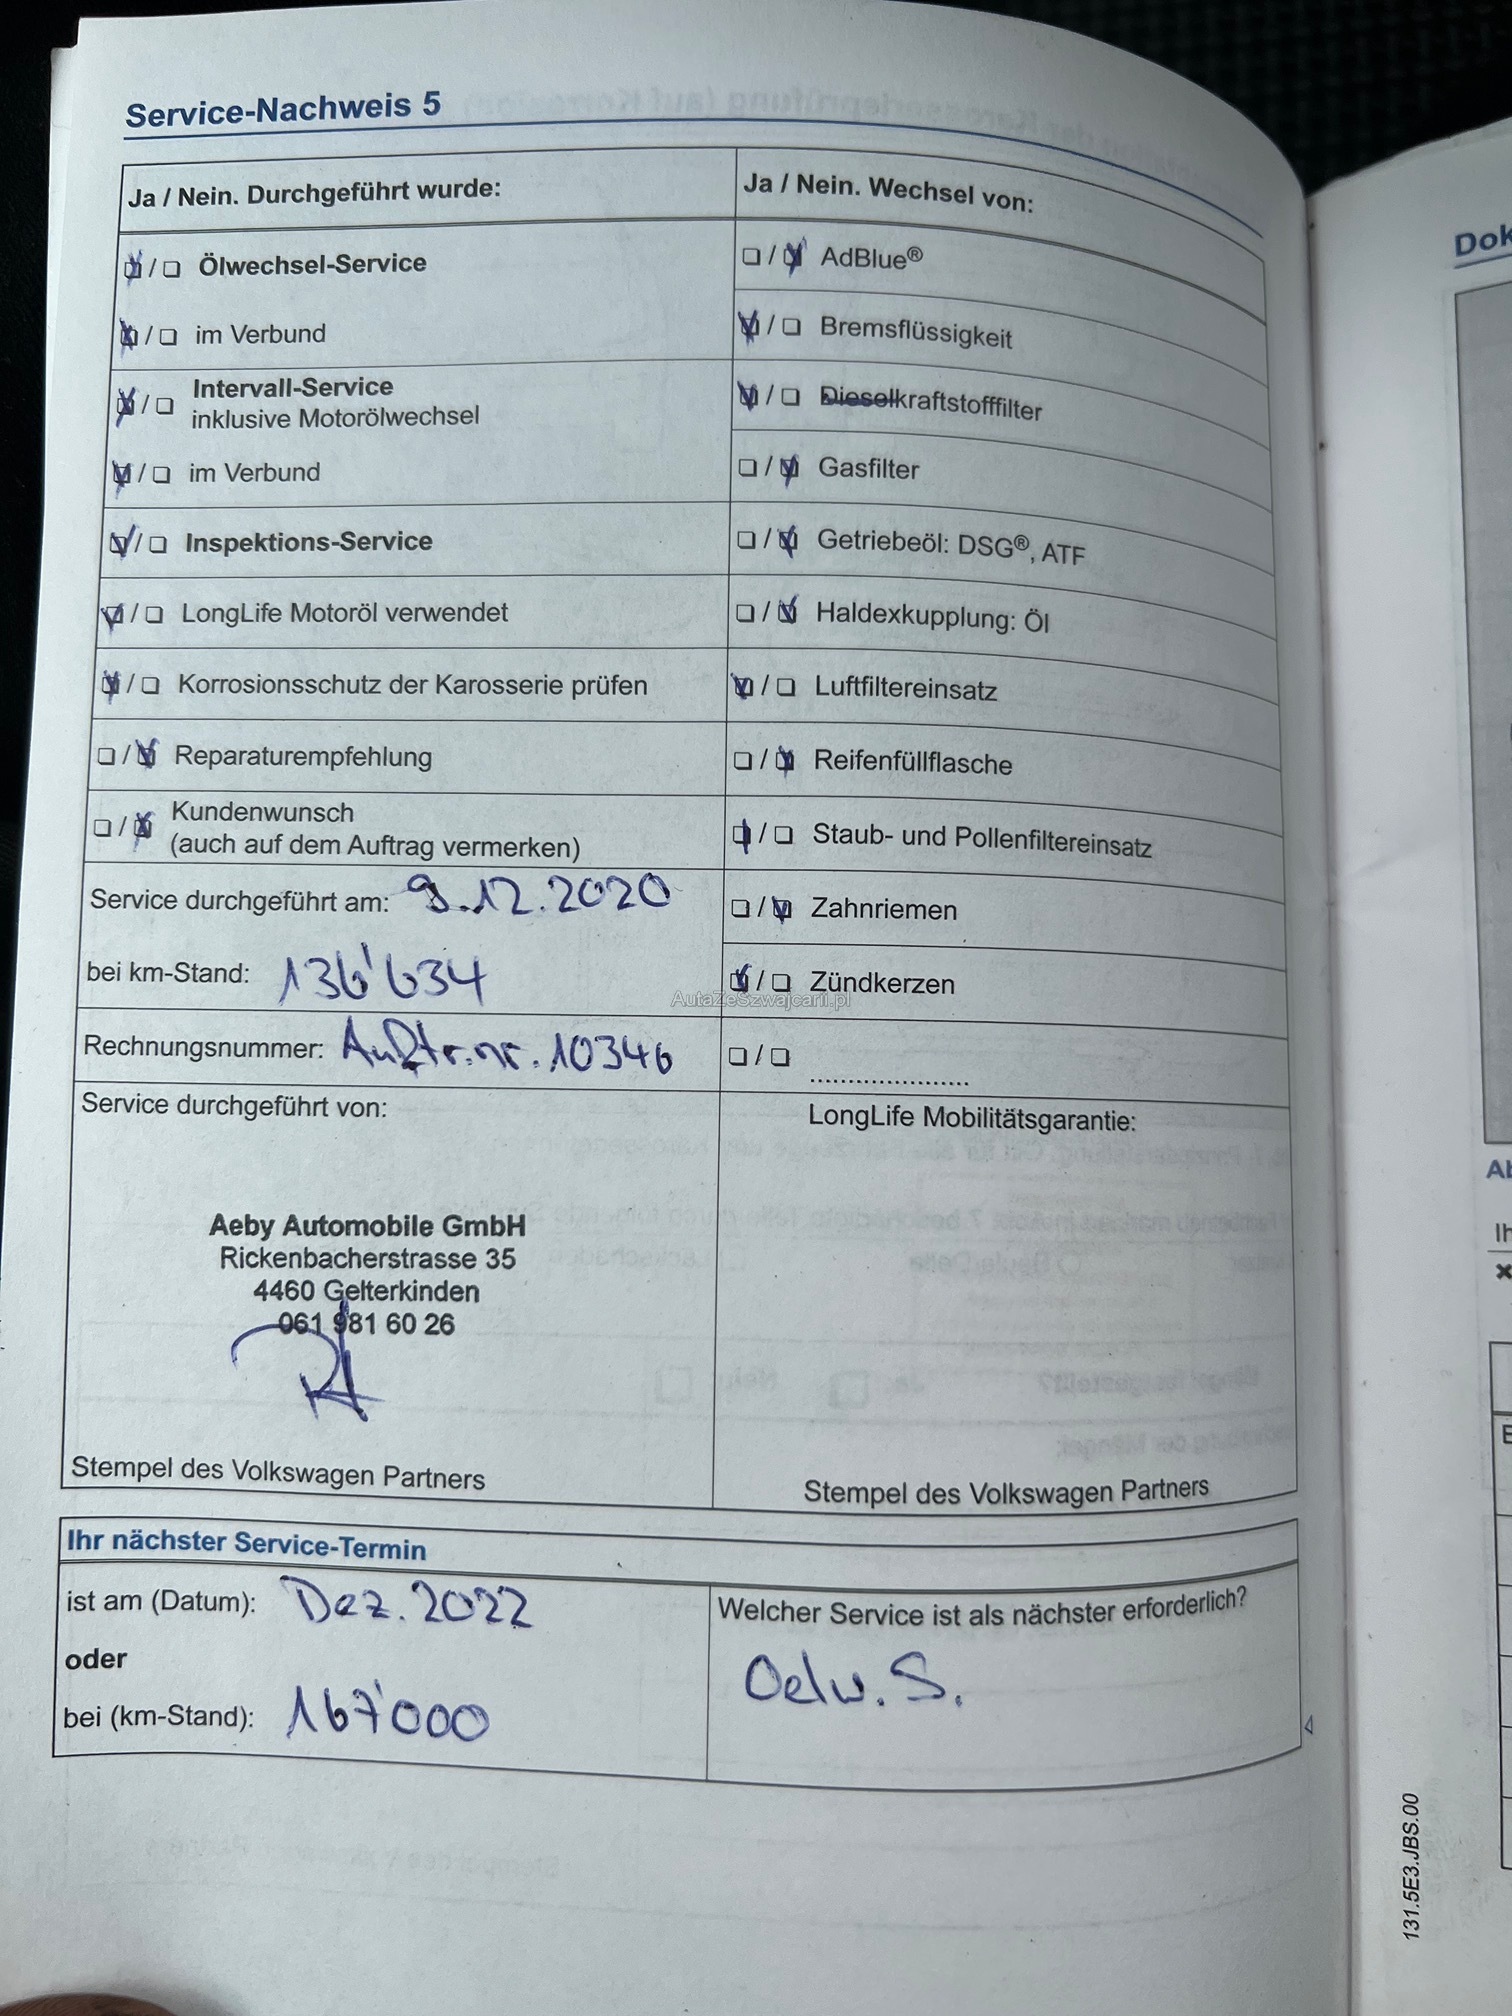 Service-Nachweis 5
Ja / Nein. Durchgeführt wurde:
☒ / ☐ Ölwechsel-Service
☒ / ☐ im Verbund
☒ / ☐ Intervall-Service
inklusive Motorölwechsel
☒ / ☐ im Verbund
☒ / ☐ Inspektions-Service
☒ / ☐ LongLife Motoröl verwendet
☒ / ☐ Korrosionsschutz der Karosserie prüfen
☐ / ☒ Reparaturempfehlung
☐ / ☒ Kundenwunsch
(auch auf dem Auftrag vermerken)
Service durchgeführt am: 9.12.2020
bei km-Stand: 136'634
Rechnungsnummer: Auftr.nr.10346
Ja / Nein. Wechsel von:
☐ / ☒ AdBlue®
☒ / ☐ Bremsflüssigkeit
☒ / ☐ Dieselkraftstofffilter
☐ / ☒ Gasfilter
☐ / ☒ Getriebeöl: DSG®, ATF
☐ / ☒ Haldexkupplung: Öl
☒ / ☐ Luftfiltereinsatz
☐ / ☒ Reifenfüllflasche
☒ / ☐ Staub- und Pollenfiltereinsatz
☐ / ☒ Zahnriemen
☒ / ☐ Zündkerzen
AutaZeSzwajcarii.pl
☐ / ☐ ......................
Service durchgeführt von:
Aeby Automobile GmbH
Rickenbacherstrasse 35
4460 Gelterkinden
061 981 60 26
Stempel des Volkswagen Partners
LongLife Mobilitätsgarantie:
Stempel des Volkswagen Partners
Ihr nächster Service-Termin
ist am (Datum): Dez. 2022
oder
bei (km-Stand): 167'000
Welcher Service ist als nächster erforderlich?
Oelw. S.
131.5E3.JBS.00